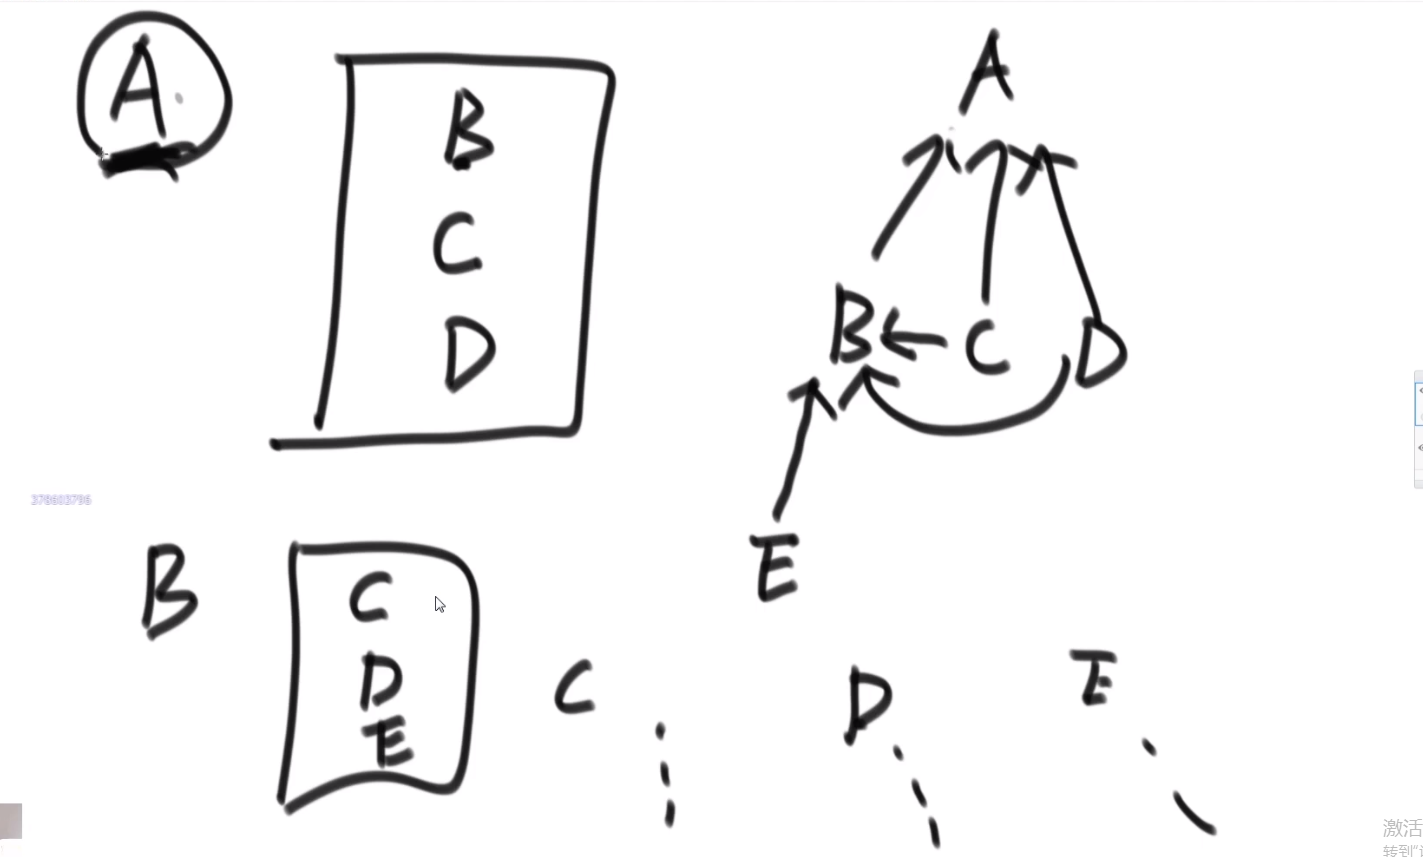 A
B
C
D
A
B
C
D
E
378603796
B
C
D
E
C
D
E
激活
转到"设